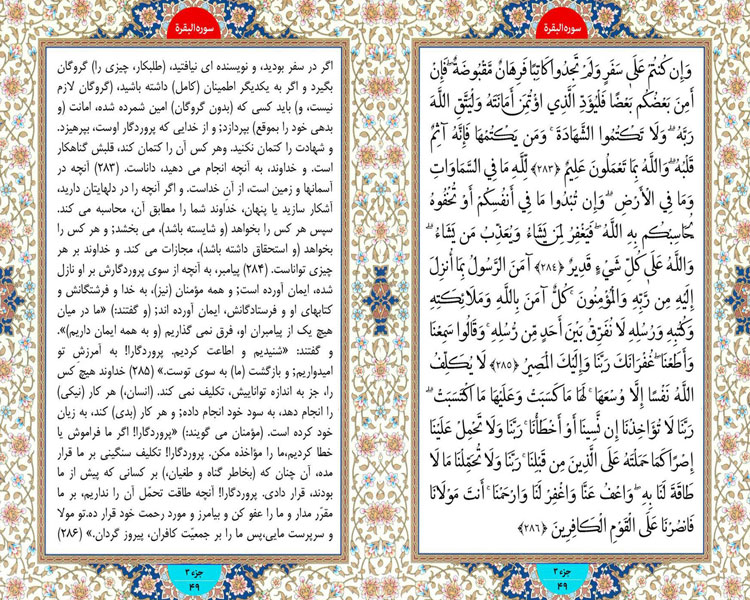 سوره‌البقرة
وَإِن كُنتُمْ عَلَىٰ سَفَرٍ وَلَمْ تَجِدُوا كَاتِبًا فَرِهَانٌ مَّقْبُوضَةٌ ۖ فَإِنْ
أَمِنَ بَعْضُكُم بَعْضًا فَلْيُؤَدِّ الَّذِي اؤْتُمِنَ أَمَانَتَهُ وَلْيَتَّقِ اللَّهَ
رَبَّهُ ۗ وَلَا تَكْتُمُوا الشَّهَادَةَ ۚ وَمَن يَكْتُمْهَا فَإِنَّهُ آثِمٌ
قَلْبُهُ ۗ وَاللَّهُ بِمَا تَعْمَلُونَ عَلِيمٌ ﴿۲۸۳﴾ لِّلَّهِ مَا فِي السَّمَاوَاتِ
وَمَا فِي الْأَرْضِ ۗ وَإِن تُبْدُوا مَا فِي أَنفُسِكُمْ أَوْ تُخْفُوهُ
يُحَاسِبْكُم بِهِ اللَّهُ ۖ فَيَغْفِرُ لِمَن يَشَاءُ وَيُعَذِّبُ مَن يَشَاءُ ۗ
وَاللَّهُ عَلَىٰ كُلِّ شَيْءٍ قَدِيرٌ ﴿۲۸۴﴾ آمَنَ الرَّسُولُ بِمَا أُنزِلَ
إِلَيْهِ مِن رَّبِّهِ وَالْمُؤْمِنُونَ ۚ كُلٌّ آمَنَ بِاللَّهِ وَمَلَائِكَتِهِ
وَكُتُبِهِ وَرُسُلِهِ لَا نُفَرِّقُ بَيْنَ أَحَدٍ مِّن رُّسُلِهِ ۚ وَقَالُوا سَمِعْنَا
وَأَطَعْنَا ۖ غُفْرَانَكَ رَبَّنَا وَإِلَيْكَ الْمَصِيرُ ﴿۲۸۵﴾ لَا يُكَلِّفُ
اللَّهُ نَفْسًا إِلَّا وُسْعَهَا ۚ لَهَا مَا كَسَبَتْ وَعَلَيْهَا مَا اكْتَسَبَتْ ۗ
رَبَّنَا لَا تُؤَاخِذْنَا إِن نَّسِينَا أَوْ أَخْطَأْنَا ۚ رَبَّنَا وَلَا تَحْمِلْ عَلَيْنَا
إِصْرًا كَمَا حَمَلْتَهُ عَلَى الَّذِينَ مِن قَبْلِنَا ۚ رَبَّنَا وَلَا تُحَمِّلْنَا مَا لَا
طَاقَةَ لَنَا بِهِ ۖ وَاعْفُ عَنَّا وَاغْفِرْ لَنَا وَارْحَمْنَا ۚ أَنتَ مَوْلَانَا
فَانصُرْنَا عَلَى الْقَوْمِ الْكَافِرِينَ ﴿۲۸۶﴾
جزء ۳
۴۹
سوره‌البقرة
اگر در سفر بودید، و نویسنده ای نیافتید، (طلبکار، چیزی را) گروگان
بگیرد و اگر به یکدیگر اطمینان (کامل) داشته باشید، (گروگان لازم
نیست، و) باید کسی که (بدون گروگان) امین شمرده شده، امانت (و
بدهی خود را بموقع) بپردازد; و از خدایی که پروردگار اوست، بپرهیزد.
و شهادت را کتمان نکنید. وهر کس آن را کتمان کند، قلبش گناهکار
است. و خداوند، به آنچه انجام می دهید، داناست. (۲۸۳) آنچه در
آسمانها و زمین است، از آنِ خداست. و اگر آنچه را در دلهایتان دارید،
آشکار سازید یا پنهان، خداوند شما را مطابق آن، محاسبه می کند.
سپس هر کس را بخواهد (و شایسته باشد)، می بخشد; و هر کس را
بخواهد (و استحقاق داشته باشد)، مجازات می کند. و خداوند بر هر
چیزی تواناست. (۲۸۴) پیامبر، به آنچه از سوی پروردگارش بر او نازل
شده، ایمان آورده است; و همه مؤمنان (نیز)، به خدا و فرشتگانش و
کتابهای او و فرستادگانش، ایمان آورده اند; (و گفتند:) «ما در میان
هیچ یک از پیامبران او، فرق نمی گذاریم (و به همه ایمان داریم)».
و گفتند: «شنیدیم و اطاعت کردیم. پروردگارا! به آمرزش تو
امیدواریم; و بازگشت (ما) به سوی توست.» (۲۸۵) خداوند هیچ کس
را، جز به اندازه تواناییش، تکلیف نمی کند. (انسان،) هر کار (نیکی)
را انجام دهد، به سود خود انجام داده; و هر کار (بدی) کند، به زیان
خود کرده است. (مؤمنان می گویند:) «پروردگارا! اگر ما فراموش یا
خطا کردیم،ما را مؤاخذه مکن. پروردگارا! تکلیف سنگینی بر ما قرار
مده، آن چنان که (بخاطر گناه و طغیان،) بر کسانی که پیش از ما
بودند، قرار دادی. پروردگارا! آنچه طاقت تحمّل آن را نداریم، بر ما
مقرّر مدار و ما را عفو کن و بیامرز و مورد رحمت خود قرار ده.تو مولا
و سرپرست مایی،پس ما را بر جمعیّت کافران، پیروز گردان.» (۲۸۶)
جزء ۳
۴۹